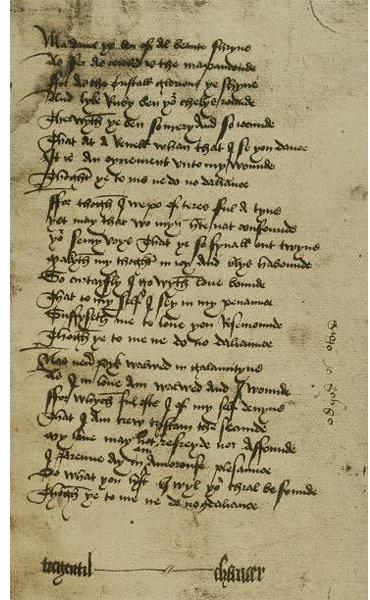 Madame ye ben of al beaute shryne
As fer as cercled is the mapamounde
ffor as the cristall glorious ye shyne
And lyke Ruby ben yor chekys rounde
Therwyth ye ben so mery and so iocunde
That at a Reuell whan that I se you dance
It is an oynement vnto my wounde
Thoght ye to me ne do no daliance
ffor thogh I wepe of teres ful a tyne
Yet may that wo myn herte nat confounde
yor semy voys that ye so small out twyne
Makyth my thoght in ioy and blys habounde
So curtaysly I go wyth loue bounde
That to my self I sey in my penaunce
Suffyseth me to loue you Rosemounde
Thogh ye to me ne do no daliaunce
Nas neuer pyk walwed in galauntyne
As I in loue am walwed and I wounde
ffor whych ful ofte I of my self deuyne
That I am trew tristam the secunde
My loue may not refreyde nor affounde
I brenne ay in an amorouse plesaunce
Do what you lyst I wyl yor thral be founde
Thogh ye to me ne do no daliance
tregentil chaucer